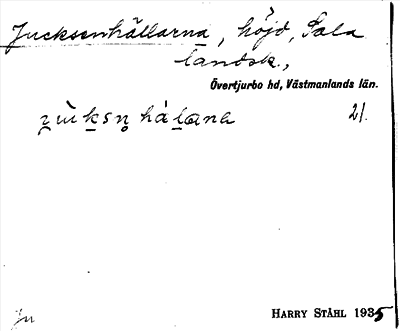 Jucksenhällarna, höjd, Sala
landsk.,
Övertjurbo hd, Västmanlands län.
21.
Ju
HARRY STÅHL 1935